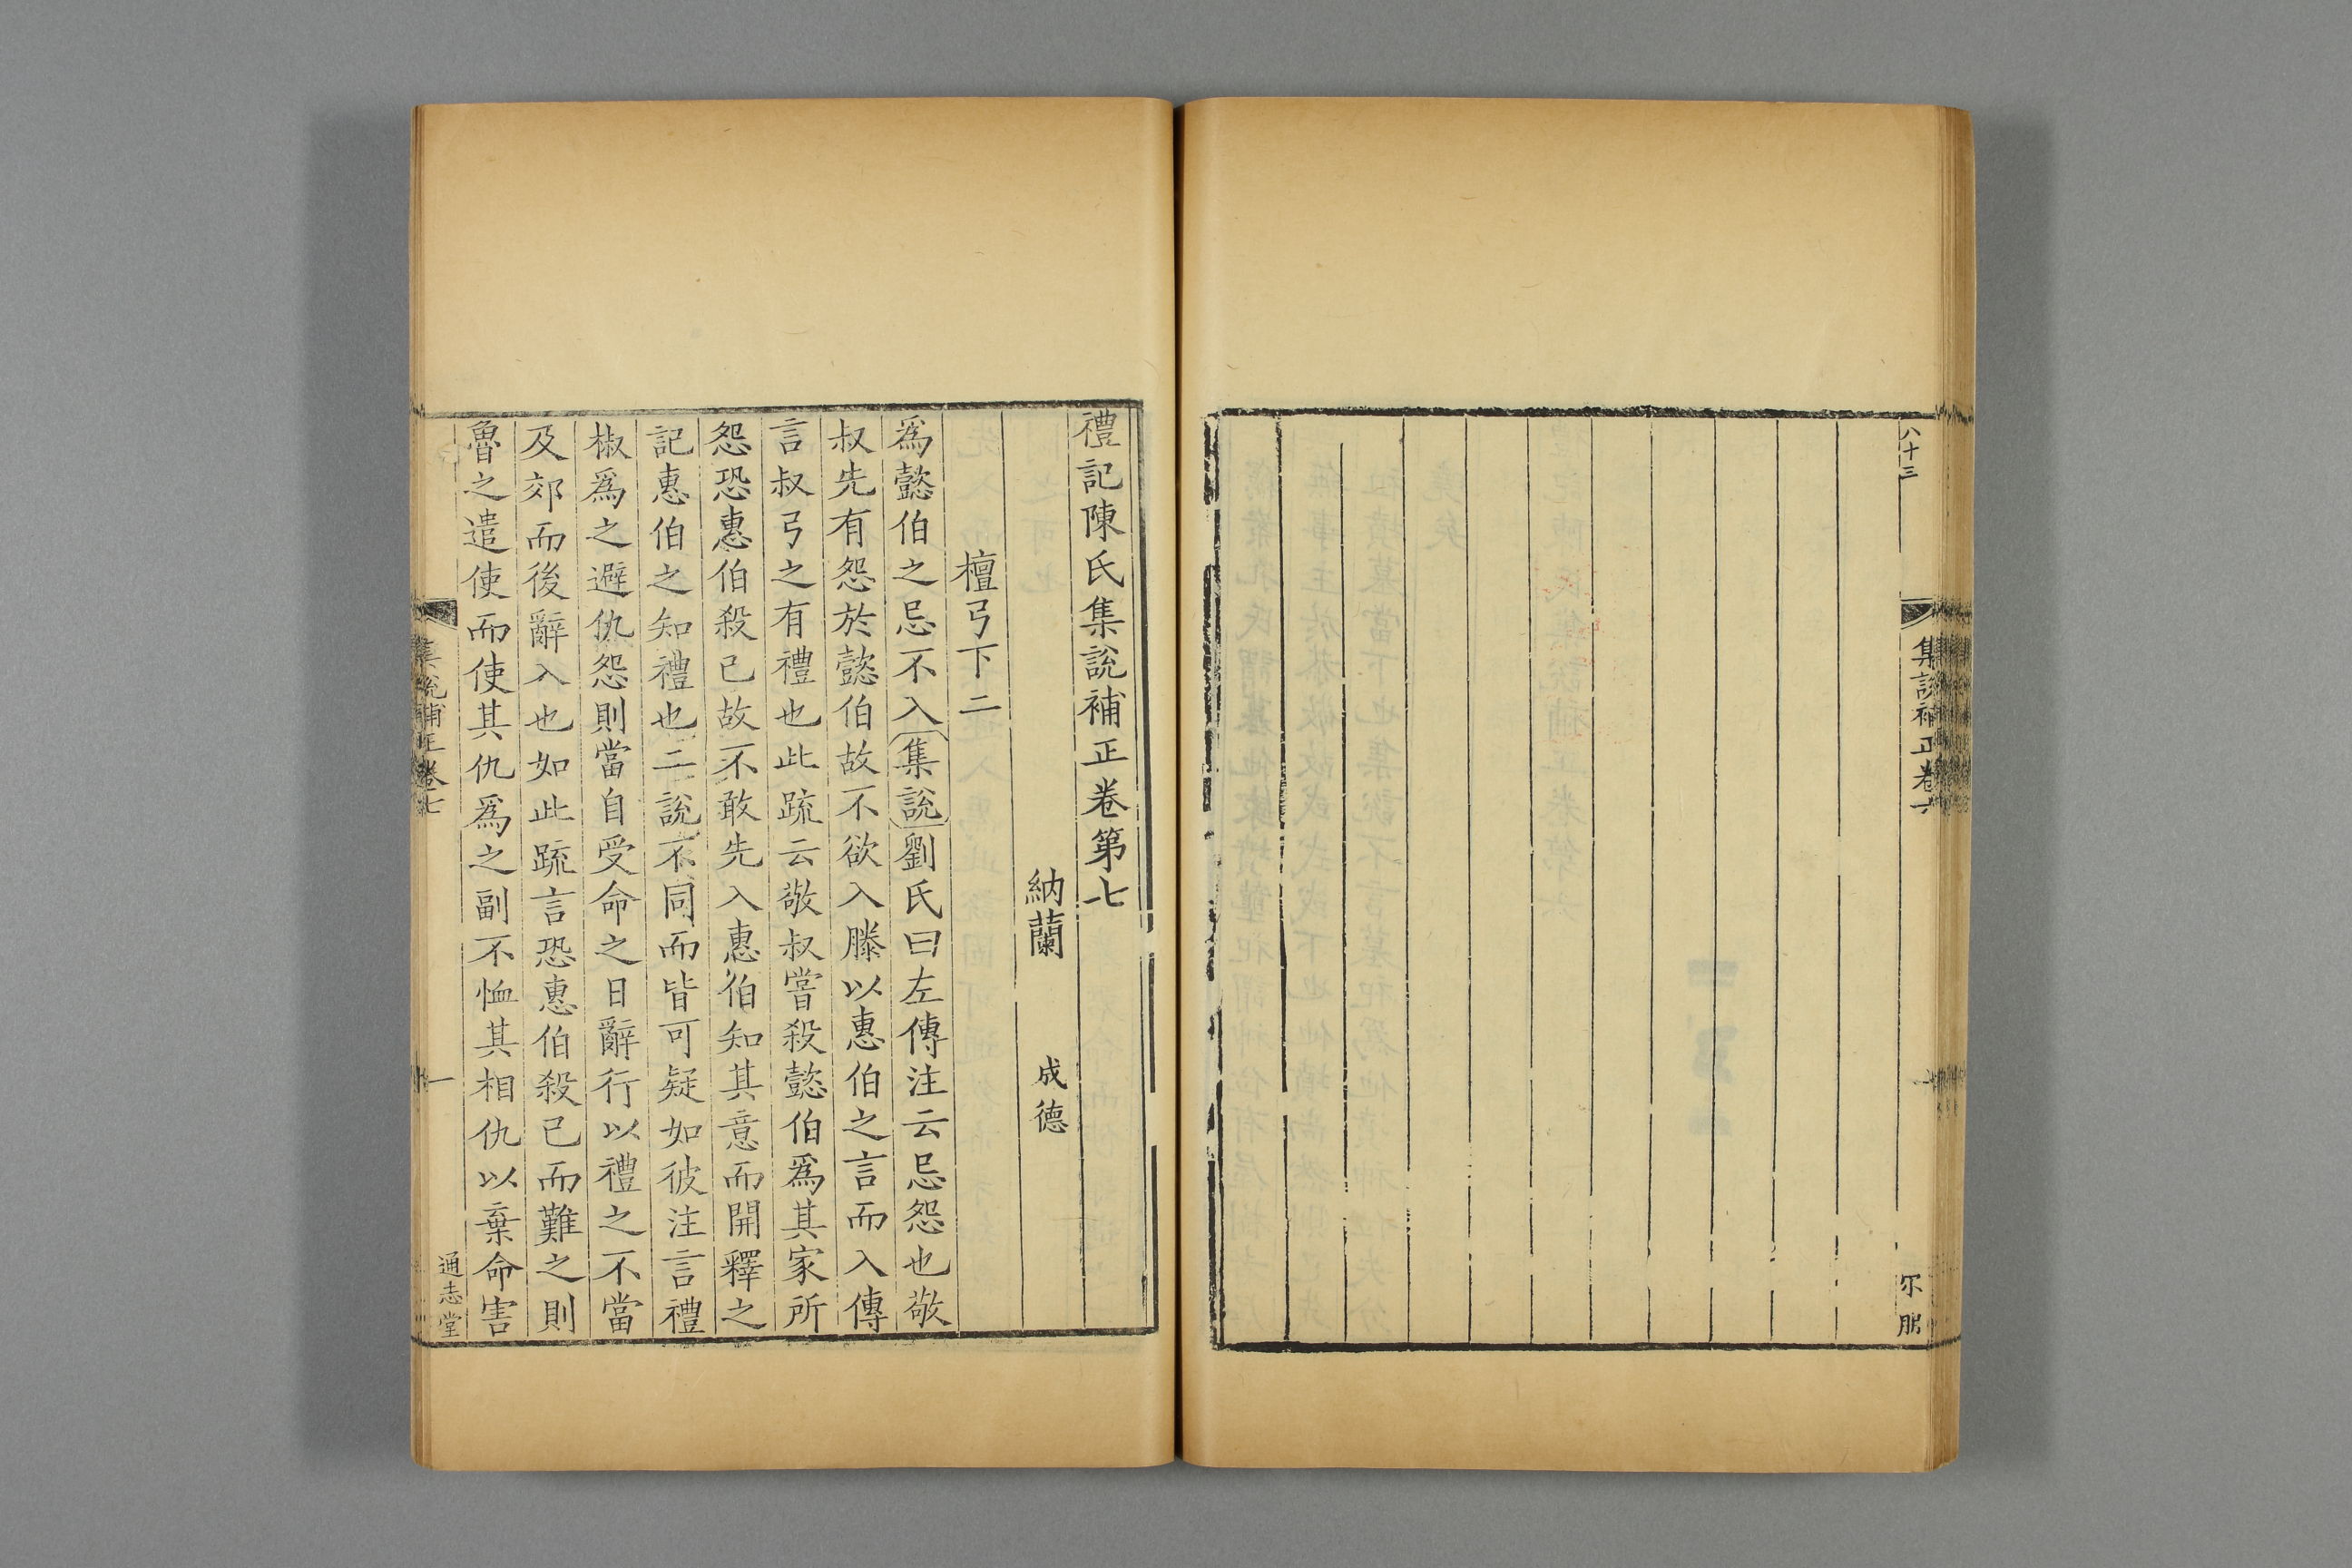 八十三
集說補正卷六
禮記陳氏集說補正卷第七
納蘭 成德
檀弓下二
爲懿伯之忌不入集說劉氏曰左傳注云忌怨也敬
叔先有怨於懿伯故不欲入滕以惠伯之言而入傳
言叔弓之有禮也此䟽云敬叔嘗殺懿伯爲其家所
怨恐惠伯殺已故不敢先入惠伯知其意而開釋之
記惠伯之知禮也二說不同而皆可疑如彼注言禮
椒爲之避仇怨則當自受命之日辭行以禮之不當
及郊而後辭入也如此䟽言恐惠伯殺已而難之則
魯之遣使而使其仇爲之副不恤其相仇以棄命害
集說補正卷七
一
通志堂